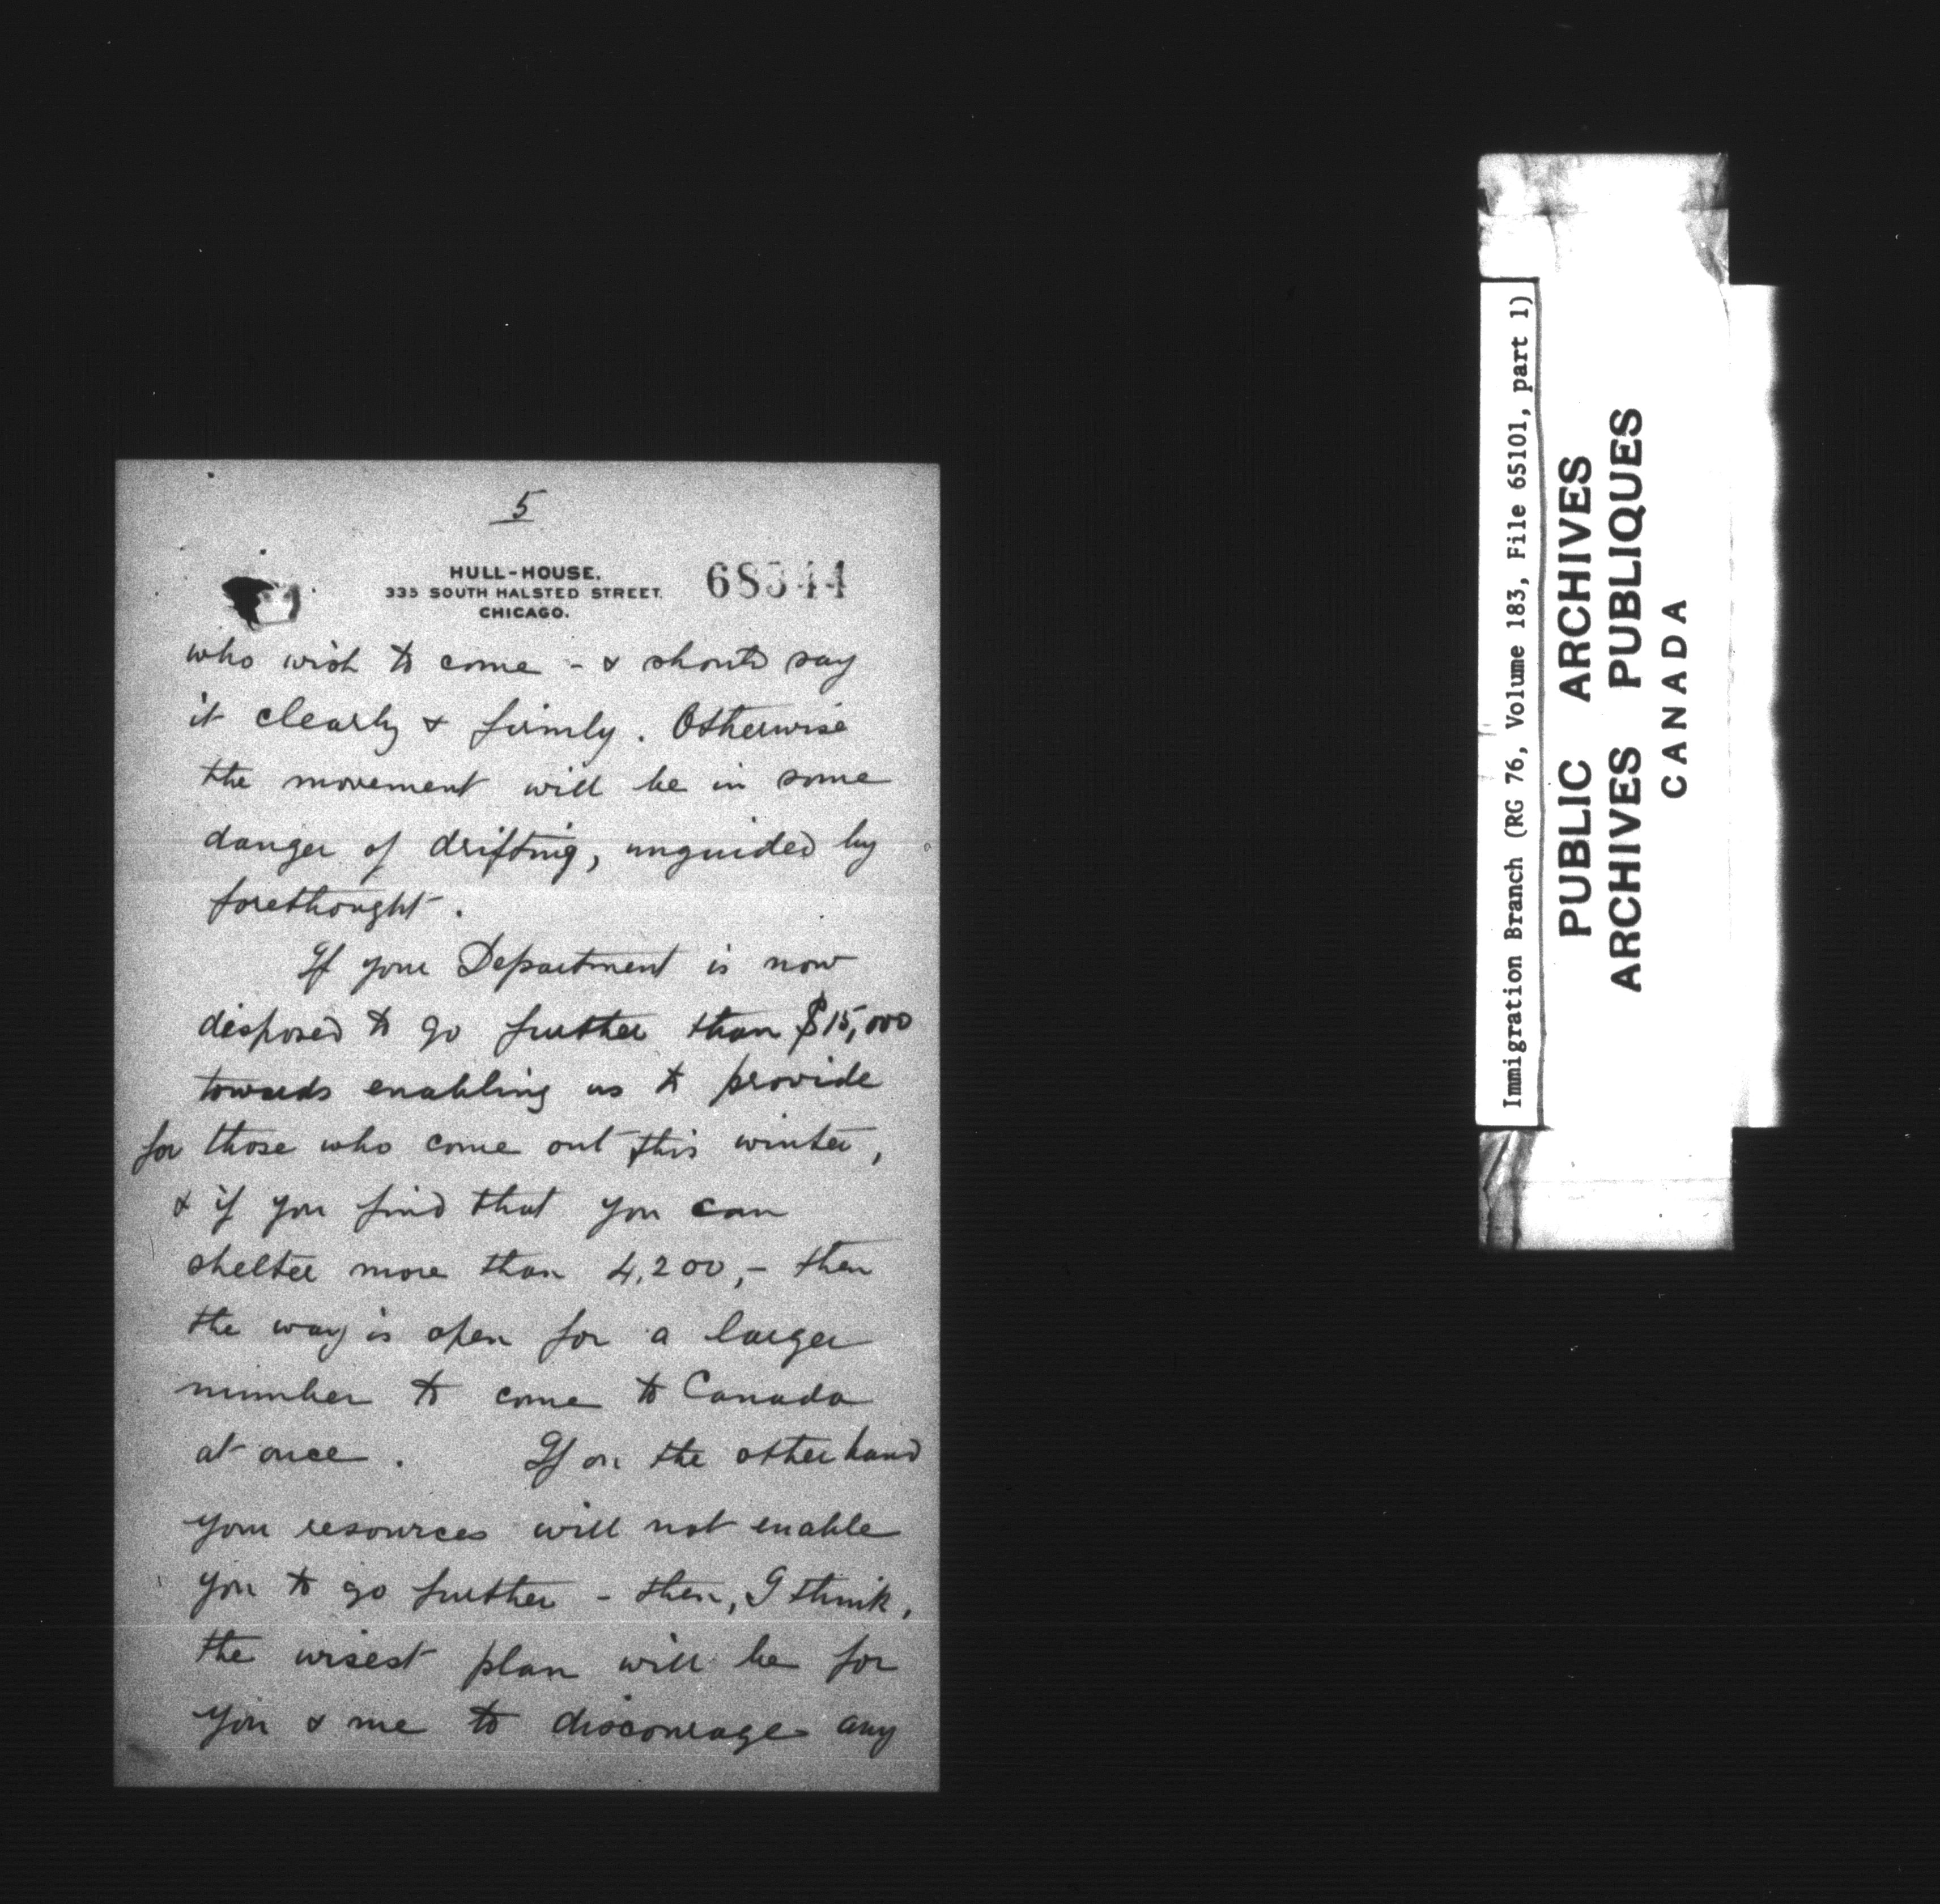 5
HULL-HOUSE.
335 SOUTH HALSTED STREET.
CHICAGO.
68344
who wish to come - & should say
it clearly & firmly. Otherwise
the movement will be in some
danger of drifting, unguided by
forethought.
If your Department is now
disposed to go further than $15,000
towards enabling us to provide
for those who come out this winter,
& if you find that you can
shelter more than 4,200,- then
the way is open for a larger
number to come to Canada
at once. If on the other hand
your resources will not enable
you to go further - then, I think,
the wisest plan will be for
you & me to discourage any
Immigration Branch (RG 76, Volume 183, File 65101, part 1)
PUBLIC ARCHIVES
ARCHIVES PUBLIQUES
CANADA